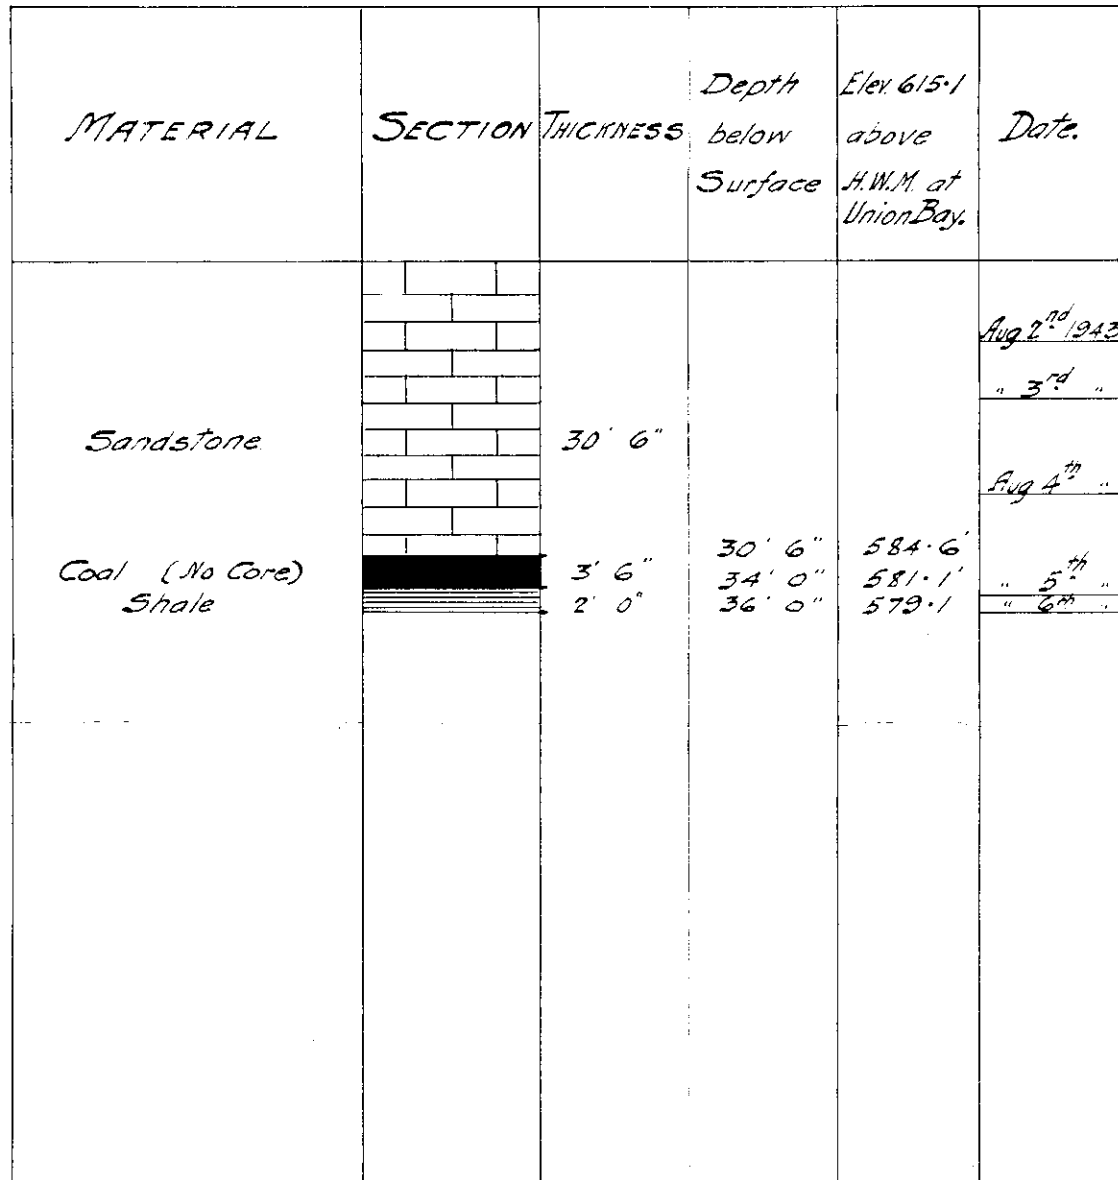 MATERIAL
SECTION
THICKNESS
Depth
below
Surface
Elev. 615·1
above
H.W.M. at
Union Bay.
Date.
Aug 2nd 1943
" 3rd "
Sandstone 30' 6"
Aug 4th "
30' 6" 584·6'
Coal (No Core) 3' 6" 34' 0" 581·1' " 5th "
Shale 2' 0" 36' 0" 579·1 " 6th "